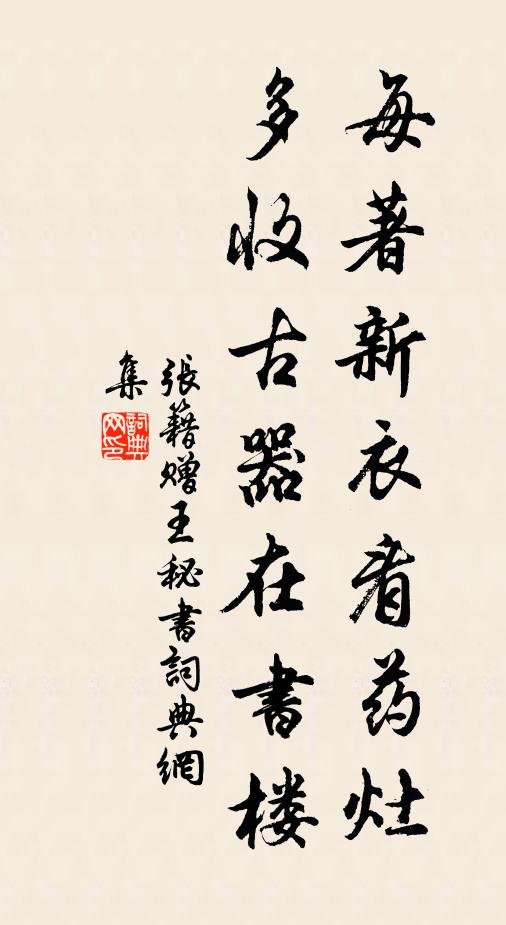 每著新衣看药灶
多收古器在書楼
張籍赠王秘書詞典網
集
詞典
网印